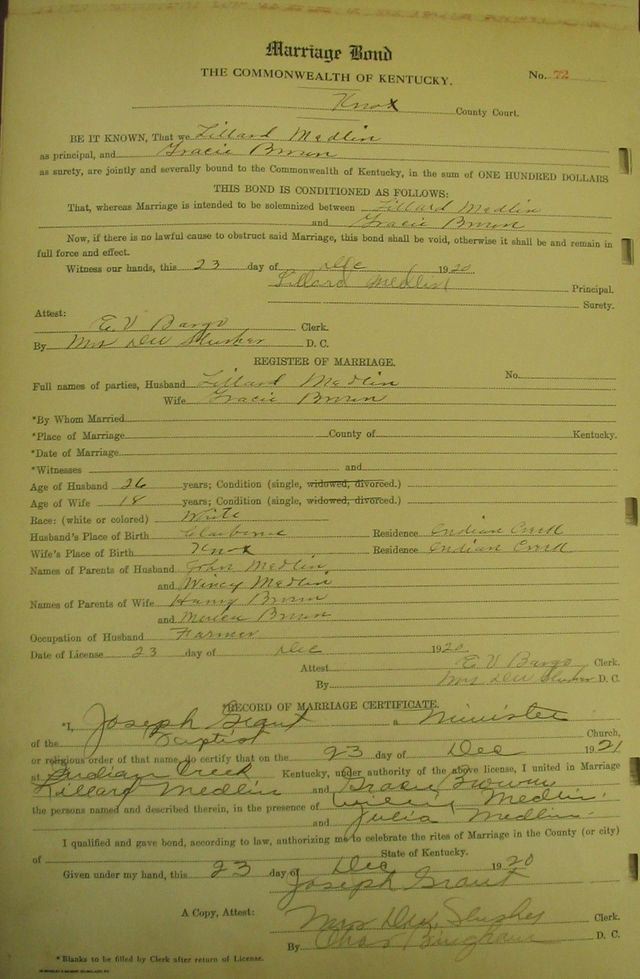 Marriage Bond
THE COMMONWEALTH OF KENTUCKY.
No. 72
Knox County Court.
BE IT KNOWN, That we Lillard Medlin
as principal, and Gracie Brown
as surety, are jointly and severally bound to the Commonwealth of Kentucky, in the sum of ONE HUNDRED DOLLARS
THIS BOND IS CONDITIONED AS FOLLOWS:
That, whereas Marriage is intended to be solemnized between Lillard Medlin
and Gracie Brown
Now, if there is no lawful cause to obstruct said Marriage, this bond shall be void, otherwise it shall be and remain in
full force and effect.
Witness our hands, this 23 day of Dec 1920
Lillard Medlin Principal.
Surety.
Attest:
E V Bargo Clerk.
By Mrs DW Slusher D. C.
REGISTER OF MARRIAGE.
No.
Full names of parties, Husband Lillard Medlin
Wife Gracie Brown
*By Whom Married
*Place of Marriage County of Kentucky.
*Date of Marriage
*Witnesses and
Age of Husband 26 years; Condition (single, widowed, divorced.)
Age of Wife 18 years; Condition (single, widowed, divorced.)
Race: (white or colored) White
Husband's Place of Birth Claiborne Residence Indian Creek
Wife's Place of Birth Knox Residence Indian Creek
Names of Parents of Husband John Medlin
and Winey Medlin
Names of Parents of Wife Brown
and Brown
Occupation of Husband Farmer
Date of License 23 day of Dec 1920
Attest E V Bargo Clerk.
By Mrs DW Slusher D. C.
RECORD OF MARRIAGE CERTIFICATE.
*I, Joseph Grant a Minister
of the Baptist Church,
or religious order of that name, do certify that on the 23 day of Dec 1921
at Indian Creek Kentucky, under authority of the above license, I united in Marriage
Lillard Medlin and Gracie Brown
the persons named and described therein, in the presence of Medlin
and Julia Medlin
I qualified and gave bond, according to law, authorizing me to celebrate the rites of Marriage in the County (or city)
of State of Kentucky.
Given under my hand, this 23 day of Dec 1920
Joseph Grant
A Copy, Attest: Mrs DW Slusher Clerk.
By Chas Bingham D. C.
* Blanks to be filled by Clerk after return of License.